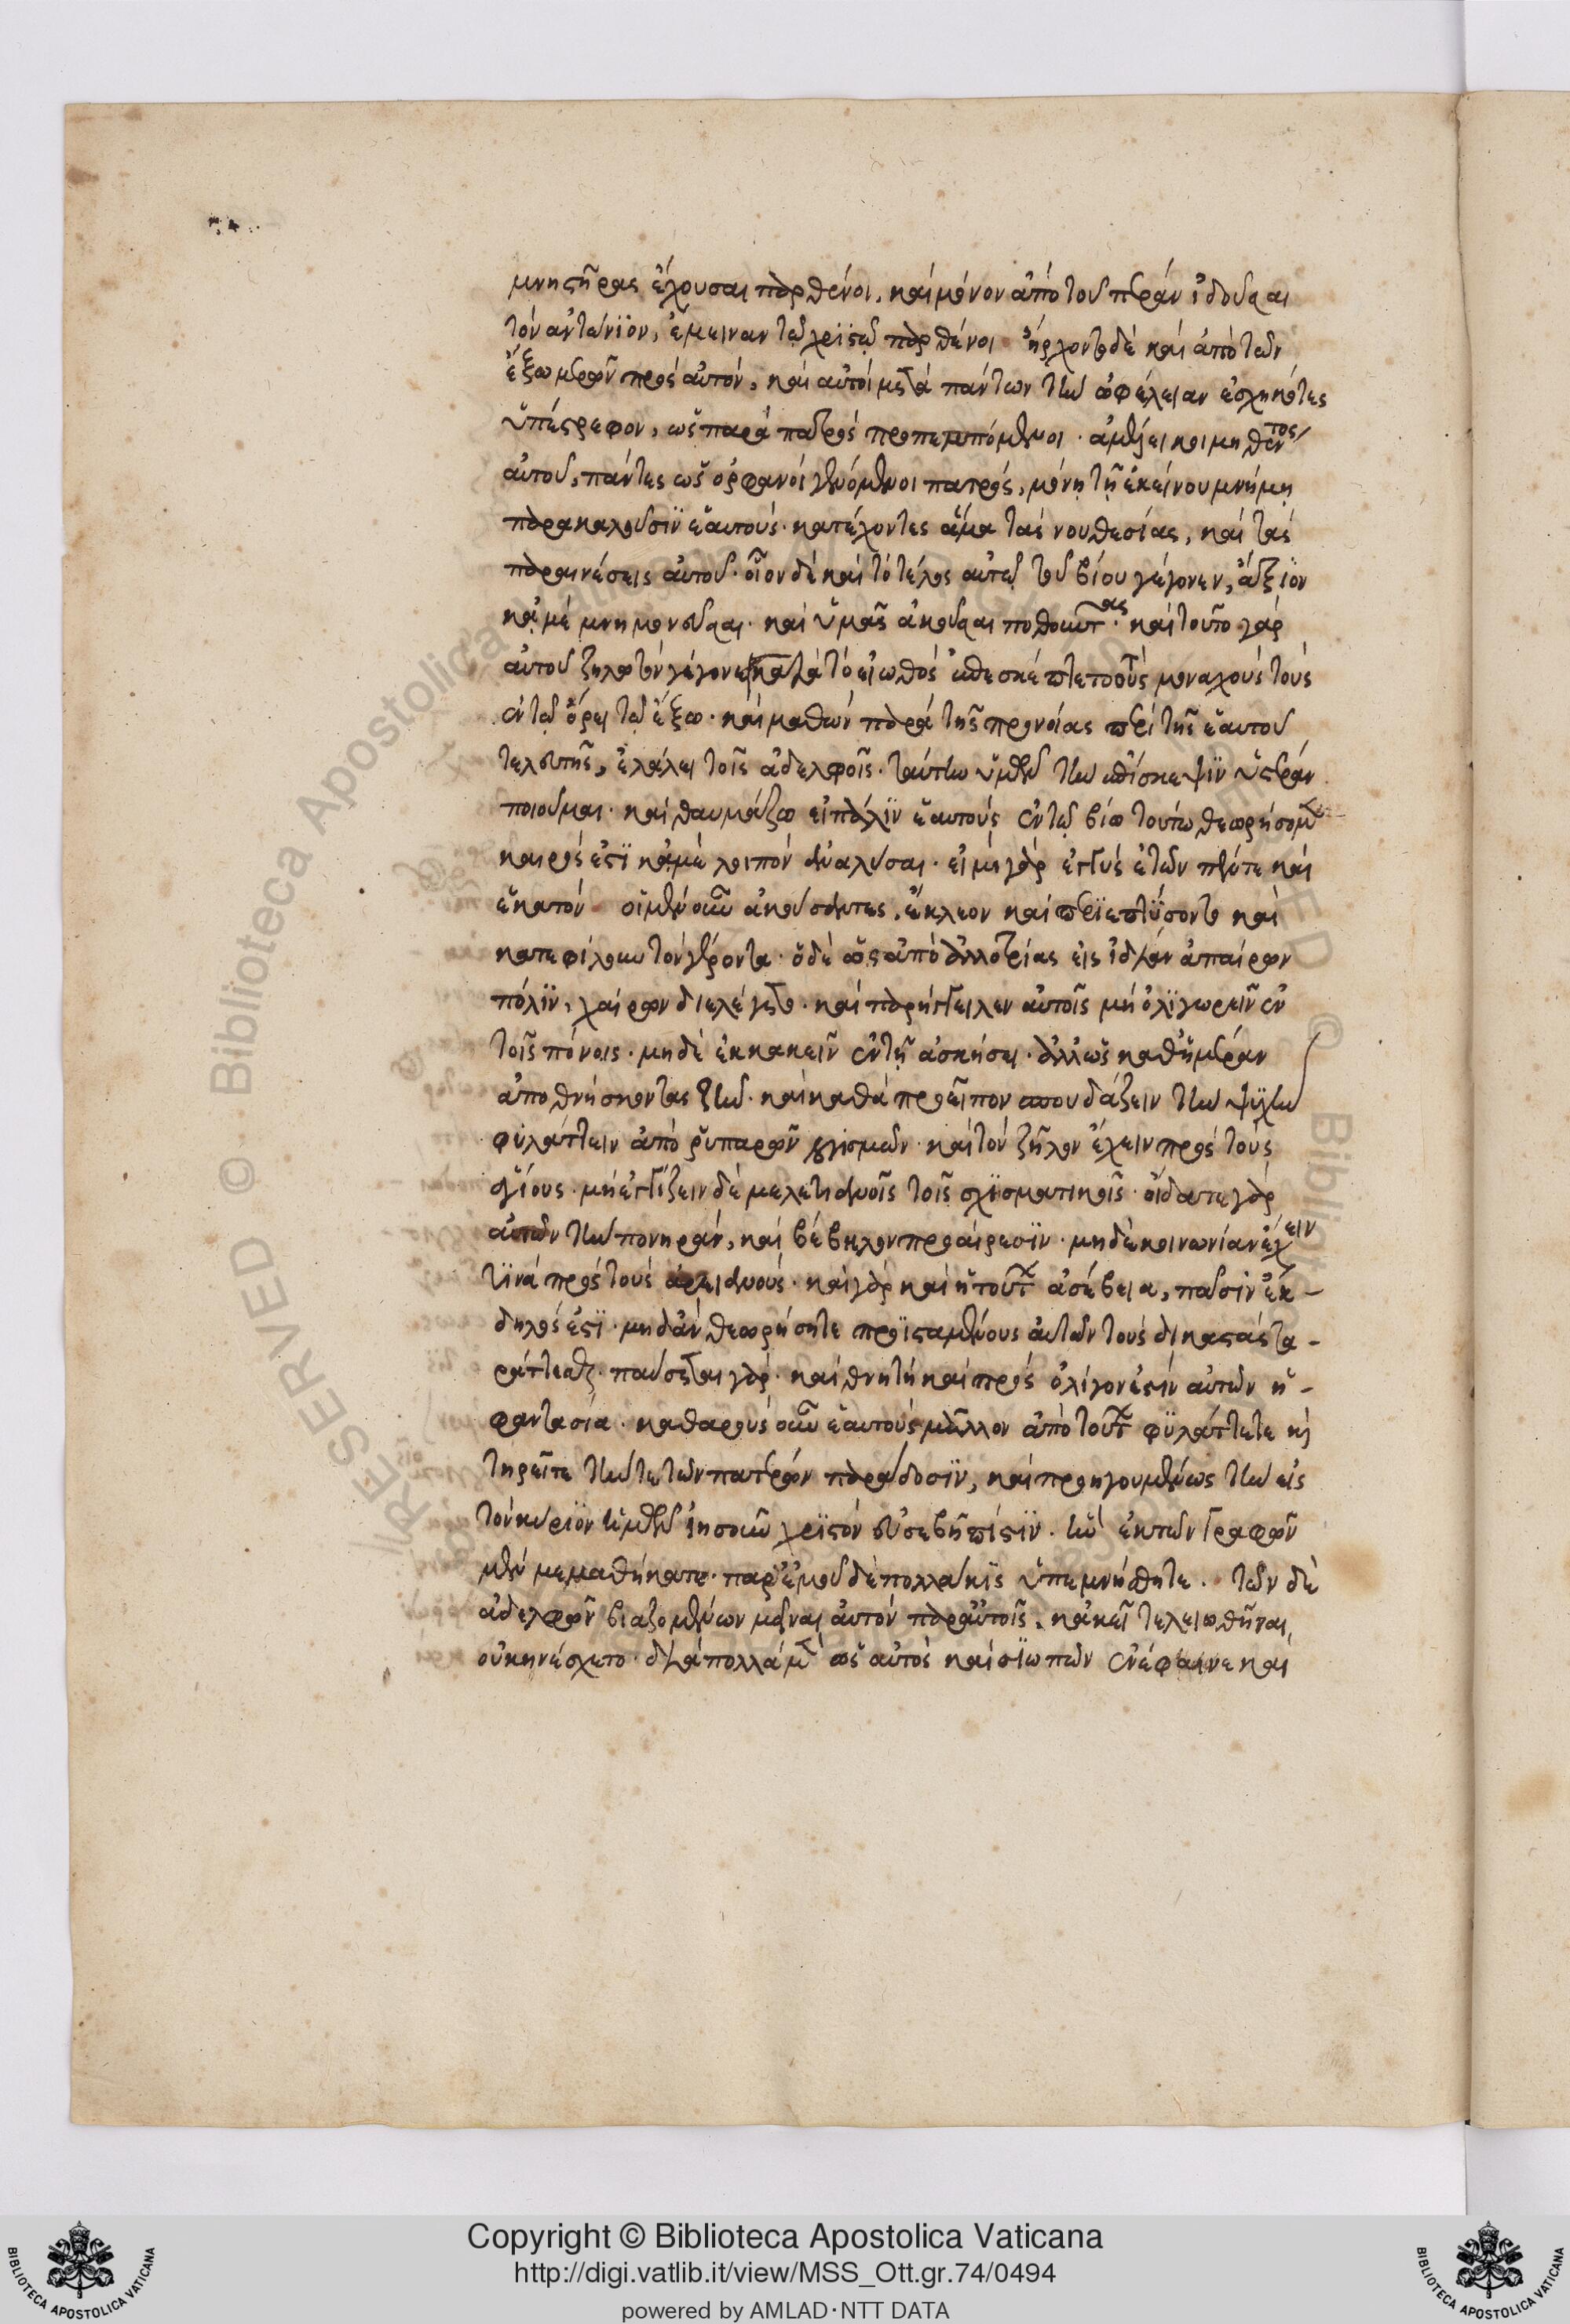 μνηστῆρας ἔχουσαι παρθένοι, καὶ μόνον ἀπὸ τοῦ πέραν ἰδοῦσαι
τὸν ἀντώνϊον, ἔμειναν τῷ χριστῷ παρθένοι ἤρχοντο δὲ καὶ ἀπὸ τῶν
ἔξω μερῶν πρὸς αὐτόν, καὶ αὐτοὶ μετὰ πάντων τὴν ὠφέλειαν ἐσχηκότες
ὑπέστρεφον, ὡς παρὰ πατρὸς προπεμπόμενοι · ἀμέλει κοιμηθέντος
αὐτοῦ, πάντες ὡς ὀρφανοὶ γενόμενοι πατρός, μόνῃ τῇ ἐκείνου μνήμῃ
παρακαλοῦσϊν ἑαυτούς · κατέχοντες ἅμα τὰς νουθεσίας, καὶ τὰς
παραινέσεις αὐτοῦ · οἷον δὲ καὶ τὸ τέλος αὐτοῦ τοῦ βίου γέγονεν, ἄξϊον
κἀμὲ μνημονεῦσαι · καὶ ὑμᾶς ἀκοῦσαι ποθοῦντας · καὶ τοῦτο γὰρ
αὐτοῦ ζηλωτὸν γέγονε κατὰ τὸ εἰωθὸς ἐπεσκέπτετο τοὺς μοναχοὺς τοὺς
ἐν τῷ ὄρει τῷ ἔξω · καὶ μαθὼν παρὰ τῆς προνοίας περὶ τῆς ἑαυτοῦ
τελευτῆς, ἐλάλει τοῖς ἀδελφοῖς · ταύτην ὑμῶν τὴν ἐπίσκεψϊν ὑστέραν
ποιοῦμαι · καὶ θαυμάζω εἰ πάλϊν ἑαυτοὺς ἐν τῷ βίω τούτω θεωρήσομεν
καιρός ἐστϊ κἀμὲ λοιπὸν ἀναλῦσαι · εἰμὶ γὰρ ἐγγὺς ἐτῶν πέντε καὶ
ἑκατόν οἱ μὲν οὖν ἀκούσαντες, ἔκλεον καὶ περϊεπτύσσοντο καὶ
κατεφίλουν τὸν γέροντα · ὁ δὲ ὡς ἀπὸ ἀλλοτρίας εἰς ἰδίαν ἀπαίρων
πόλϊν, χαίρων διελέγετο · καὶ παρήγγειλεν αὐτοῖς μὴ ὀλϊγωρεῖν ἐν
τοῖς πόνοις · μηδὲ ἐκκακεῖν ἐν τῇ ἀσκήσει · ἀλλ' ὡς καθ' ἡμέραν
ἀποθνήσκοντας ζῆν · καὶ καθὰ προεῖπον σπουδάζειν τὴν ψϋχὴν
φϋλάττειν ἀπὸ ῥυπαρῶν λογισμῶν · καὶ τὸν ζῆλον ἔχειν πρὸς τοὺς
ἁγίους · μὴ ἐγγίζειν δὲ μελετιανοῖς τοῖς σχϊσματικοῖς · οἴδατε γὰρ
αὐτῶν τὴν πονηράν, καὶ βέβηλον προαίρεσϊν · μηδὲ κοινωνίαν ἔχειν
τϊνὰ πρὸς τοὺς ἀρειανούς · καὶ γὰρ καὶ ἡ τούτων ἀσέβεια, πᾶσιν ἔκ-
δηλός ἐστϊ · μηδ' ἂν θεωρήσητε προϊσταμένους αὐτῶν τοὺς δικαστὰς τα-
ράττεσθε · παύσεται γάρ · καὶ θνητὴ καὶ πρὸς ὀλίγον ἐστὶν αὐτῶν ἡ-
φαντασία · καθαροὺς οὖν ἑαυτοὺς μᾶλλον ἀπὸ τούτων φϋλάττετε καὶ
τηρεῖτε τὴν τε τῶν πατέρων παράδοσϊν, καὶ προηγουμένως τὴν εἰς
τὸν κύριϊον ἡμῶν ἰησοῦν χρϊστὸν εὐσεβῆ πίστϊν · ἣν ἐκ τῶν γραφῶν
μὲν μεμαθήκατε · παρ' ἐμοῦ δὲ πολλάκϊς ὑπεμνήσθητε · τῶν δὲ
ἀδελφῶν βιαζομένων μεῖναι αὐτὸν παρ' αὐτοῖς, κἀκεῖ τελειωθῆναι,
οὐκ ἠνέσχετο · διὰ πολλὰ μὲν ὡς αὐτὸς καὶ σϊωπῶν ἐνέφαινε καὶ
Copyright © Biblioteca Apostolica Vaticana
http://digi.vatlib.it/view/MSS_Ott.gr.74/0494
powered by AMLAD·NTT DATA
BIBLIOTECA APOSTOLICA VATICANA
BIBLIOTECA APOSTOLICA VATICANA